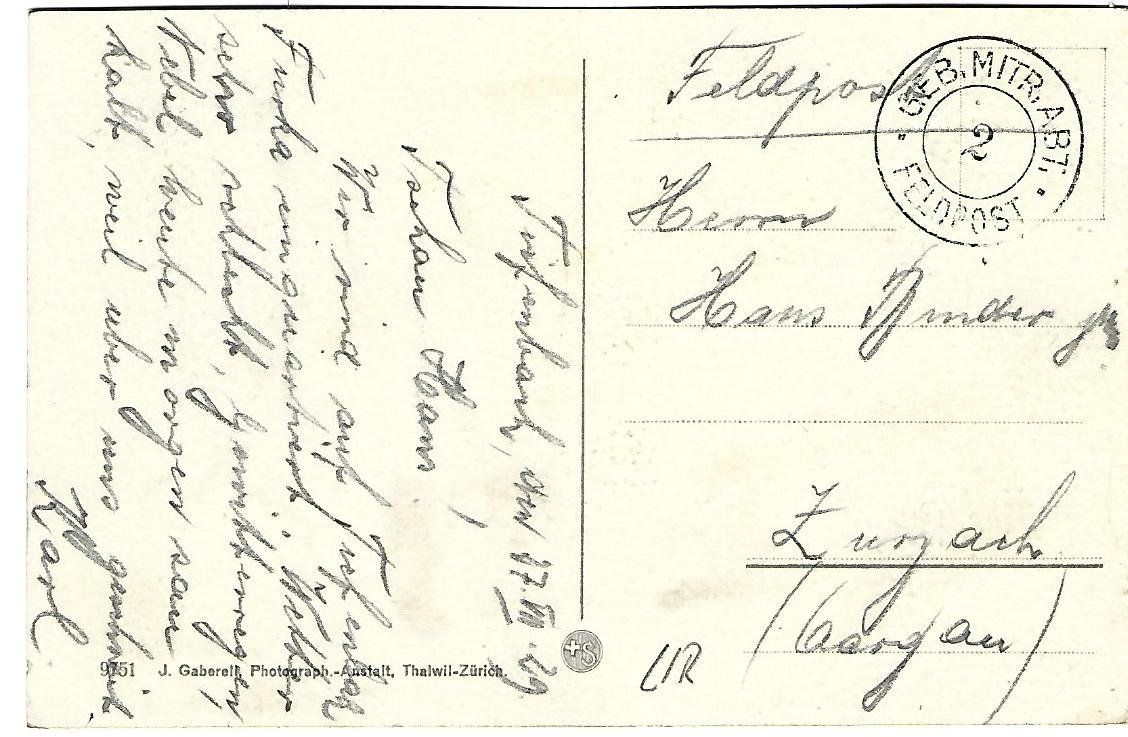 Tiefenbach, den 17. VIII. 29
Tschau Hans,
Wir sind auf Tiefenbach
Furka einquartiert. Wetter
sehr schlecht, Gewitterregen,
Nebel, heute morgen sau
kalt, weil über uns
Karl
9751 J. Gaberell, Photograph.-Anstalt, Thalwil-Zürich.
+S
Feldpost
GEB. MITR. ABT.
2
FELDPOST
Herrn
Hans Binder jr
Zurzach
(Aargau)